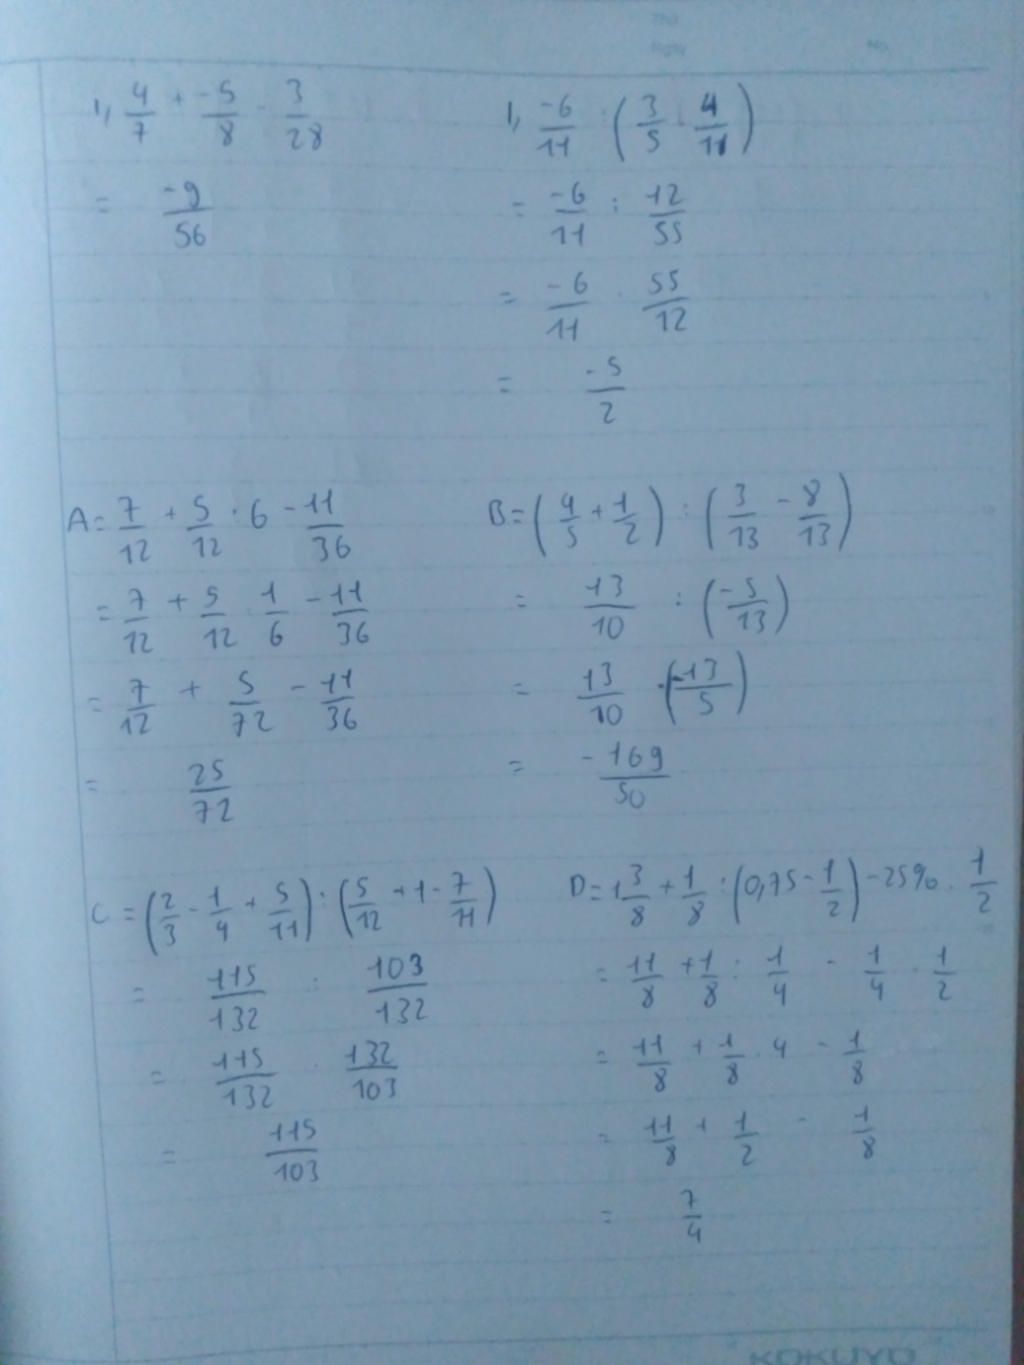 Thứ
Ngày No.
1, 4/7 + -5/8 - 3/28
= -9/56
1, -6/11 : (3/5 . 4/11)
= -6/11 : 12/55
= -6/11 . 55/12
= -5/2
A = 7/12 + 5/12 : 6 - 11/36
= 7/12 + 5/12 . 1/6 - 11/36
= 7/12 + 5/72 - 11/36
= 25/72
B = (4/5 + 1/2) : (3/13 - 8/13)
= 13/10 : (-5/13)
= 13/10 . (-13/5)
= -169/50
C = (2/3 - 1/4 + 5/11) : (5/12 + 1 - 7/11)
= 115/132 : 103/132
= 115/132 . 132/103
= 115/103
D = 1 3/8 + 1/8 : (0,75 - 1/2) - 25% . 1/2
= 11/8 + 1/8 : 1/4 - 1/4 . 1/2
= 11/8 + 1/8 . 4 - 1/8
= 11/8 + 1/2 - 1/8
= 7/4
KOKUYO